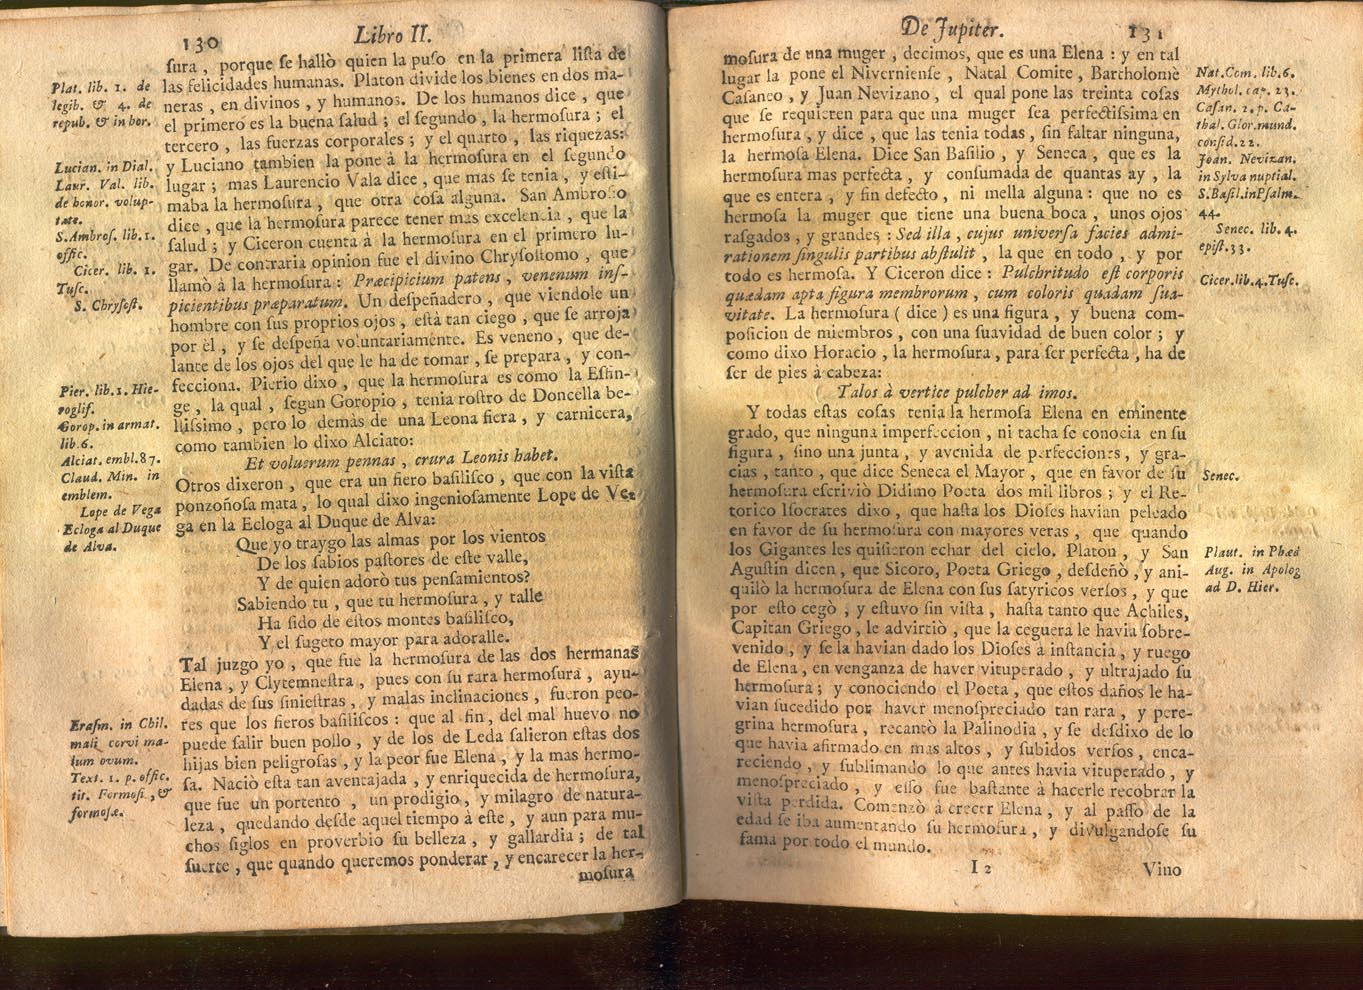 130 Libro II.
sura, porque se hallò quien la puso en la primera lista de
las felicidades humanas. Platon divide los bienes en dos ma-
neras, en divinos, y humanos. De los humanos dice, que
el primero es la buena salud; el segundo, la hermosura; el
tercero, las fuerzas corporales; y el quarto, las riquezas:
y Luciano tambien la pone à la hermosura en el segundo
lugar; mas Laurencio Vala dice, que mas se tenia, y esti-
maba la hermosura, que otra cosa alguna. San Ambrosio
dice, que la hermosura parece tener mas excelencia, que la
salud; y Ciceron cuenta à la hermosura en el primero lu-
gar. De contraria opinion fue el divino Chrysostomo, que
llamò à la hermosura: Præcipicium patens, venenum ins-
picientibus præparatum. Un despeñadero, que viendole un
hombre con sus proprios ojos, està tan ciego, que se arroja
por èl, y se despeña voluntariamente. Es veneno, que de-
lante de los ojos del que le ha de tomar, se prepara, y con-
fecciona. Pierio dixo, que la hermosura es como la Esfin-
ge, la qual, segun Goropio, tenia rostro de Doncella be-
llissimo, pero lo demàs de una Leona fiera, y carnicera,
como tambien lo dixo Alciato:
Et voluerum pennas, crura Leonis habet.
Otros dixeron, que era un fiero basilisco, que con la vista
ponzoñosa mata, lo qual dixo ingeniosamente Lope de Ve-
ga en la Ecloga al Duque de Alva:
Que yo traygo las almas por los vientos
De los sabios pastores de este valle,
Y de quien adorò tus pensamientos?
Sabiendo tu, que tu hermosura, y talle
Ha sido de estos montes basilisco,
Y el sugeto mayor para adoralle.
Tal juzgo yo, que fue la hermosura de las dos hermanas
Elena, y Clytemnestra, pues con su rara hermosura, ayu-
dadas de sus siniestras, y malas inclinaciones, fueron peo-
res que los fieros basiliscos: que al fin, del mal huevo no
puede salir buen pollo, y de los de Leda salieron estas dos
hijas bien peligrosas, y la peor fue Elena, y la mas hermo-
sa. Naciò esta tan aventajada, y enriquecida de hermosura,
que fue un portento, un prodigio, y milagro de natura-
leza, quedando desde aquel tiempo à este, y aun para mu-
chos siglos en proverbio su belleza, y gallardia; de tal
suerte, que quando queremos ponderar, y encarecer la her-
mosura
Plat. lib. 1. de
legib. & 4. de
repub. & in hor.
Lucian. in Dial.
Laur. Val. lib.
de honor. volup-
tate.
S. Ambros. lib. 1.
offic.
Cicer. lib. 1.
Tusc.
S. Chrysost.
Pier. lib. 1. Hie-
roglif.
Gorop. in armat.
lib. 6.
Alciat. embl. 87.
Claud. Min. in
emblem.
Lope de Vega
Ecloga al Duque
de Alva.
Erasm. in Chil.
mali corvi ma-
lum ovum.
Text. 1. p. offic.
tit. Formosi, &
formosæ.
De Jupiter. 131
mosura de una muger, decimos, que es una Elena: y en tal
lugar la pone el Niverniense, Natal Comite, Bartholomè
Casaneo, y Juan Nevizano, el qual pone las treinta cosas
que se requieren para que una muger sea perfectissima en
hermosura, y dice, que las tenia todas, sin faltar ninguna,
la hermosa Elena. Dice San Basilio, y Seneca, que es la
hermosura mas perfecta, y consumada de quantas ay, la
que es entera, y sin defecto, ni mella alguna: que no es
hermosa la muger que tiene una buena boca, unos ojos
rasgados, y grandes: Sed illa, cujus universa facies admi-
rationem singulis partibus abstulit, la que en todo, y por
todo es hermosa. Y Ciceron dice: Pulchritudo est corporis
quædam apta figura membrorum, cum coloris quadam sua-
vitate. La hermosura (dice) es una figura, y buena com-
posicion de miembros, con una suavidad de buen color; y
como dixo Horacio, la hermosura, para ser perfecta, ha de
ser de pies à cabeza:
Talos à vertice pulcher ad imos.
Y todas estas cosas tenia la hermosa Elena en eminente
grado, que ninguna imperfeccion, ni tacha se conocia en su
figura, sino una junta, y avenida de perfecciones, y gra-
cias, tanto, que dice Seneca el Mayor, que en favor de su
hermosura escriviò Didimo Poeta dos mil libros; y el Re-
torico Isocrates dixo, que hasta los Dioses havian peleado
en favor de su hermosura con mayores veras, que quando
los Gigantes les quisieron echar del cielo. Platon, y San
Agustin dicen, que Sicoro, Poeta Griego, desdeñò, y ani-
quilò la hermosura de Elena con sus satyricos versos, y que
por esto cegò, y estuvo sin vista, hasta tanto que Achiles,
Capitan Griego, le advirtiò, que la ceguera le havia sobre-
venido, y se la havian dado los Dioses à instancia, y ruego
de Elena, en venganza de haver vituperado, y ultrajado su
hermosura; y conociendo el Poeta, que estos daños le ha-
vian sucedido por haver menospreciado tan rara, y pere-
grina hermosura, recantò la Palinodia, y se desdixo de lo
que havia afirmado en mas altos, y subidos versos, enca-
reciendo, y sublimando lo que antes havia vituperado, y
menospreciado, y esso fue bastante à hacerle recobrar la
vista perdida. Comenzò à crecer Elena, y al passo de la
edad se iba aumentando su hermosura, y divulgandose su
fama por todo el mundo.
I 2 Vino
Nat. Com. lib. 6.
Mythol. cap. 23.
Casan. 2. p. Ca-
thal. Glor. mund.
consid. 22.
Joan. Nevizan.
in Sylva nuptial.
S. Basil. in Psalm.
44.
Senec. lib. 4.
epist. 33.
Cicer. lib. 4. Tusc.
Senec.
Plaut. in Phæd
Aug. in Apolog
ad D. Hier.